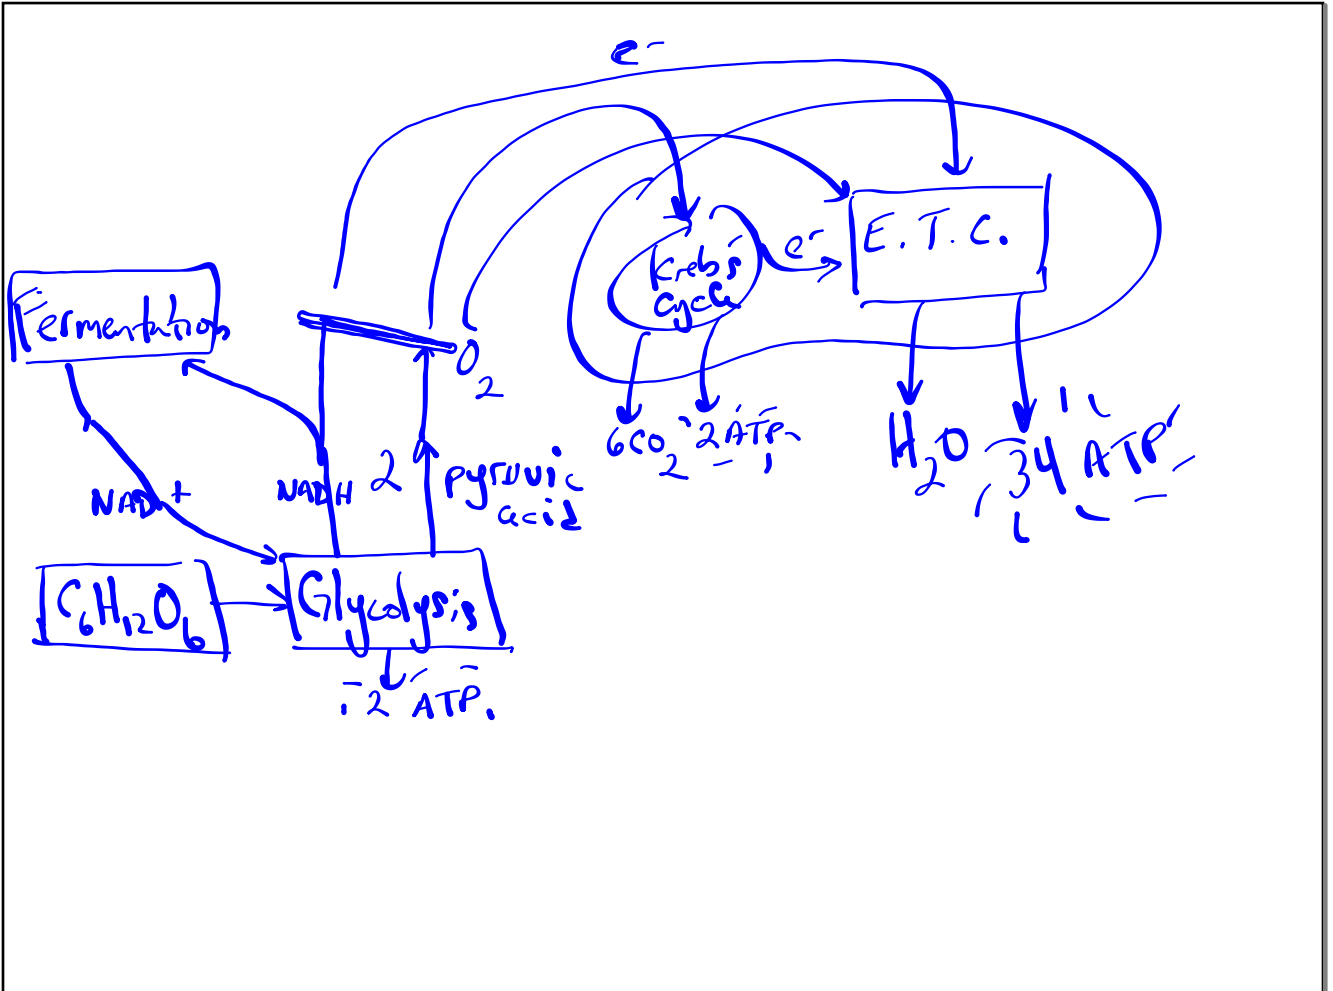 e-
Krebs
cycle
e-
E.T.C.
Fermentation
O2
6CO2
2 ATP
H2O
34 ATP
NAD+
NADH
2 pyruvic
acid
C6H12O6
Glycolysis
2 ATP